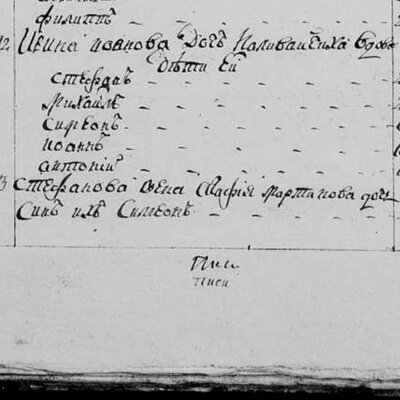 Филиппъ
12 Ирина Іоанова дочь Наливайчиха вдова
дѣти ей
Стефанъ
Михаилъ
Симеонъ
Иоаннъ
Антоній
Стефанова жена Мартинова дочь
Синъ ихъ Симеонъ